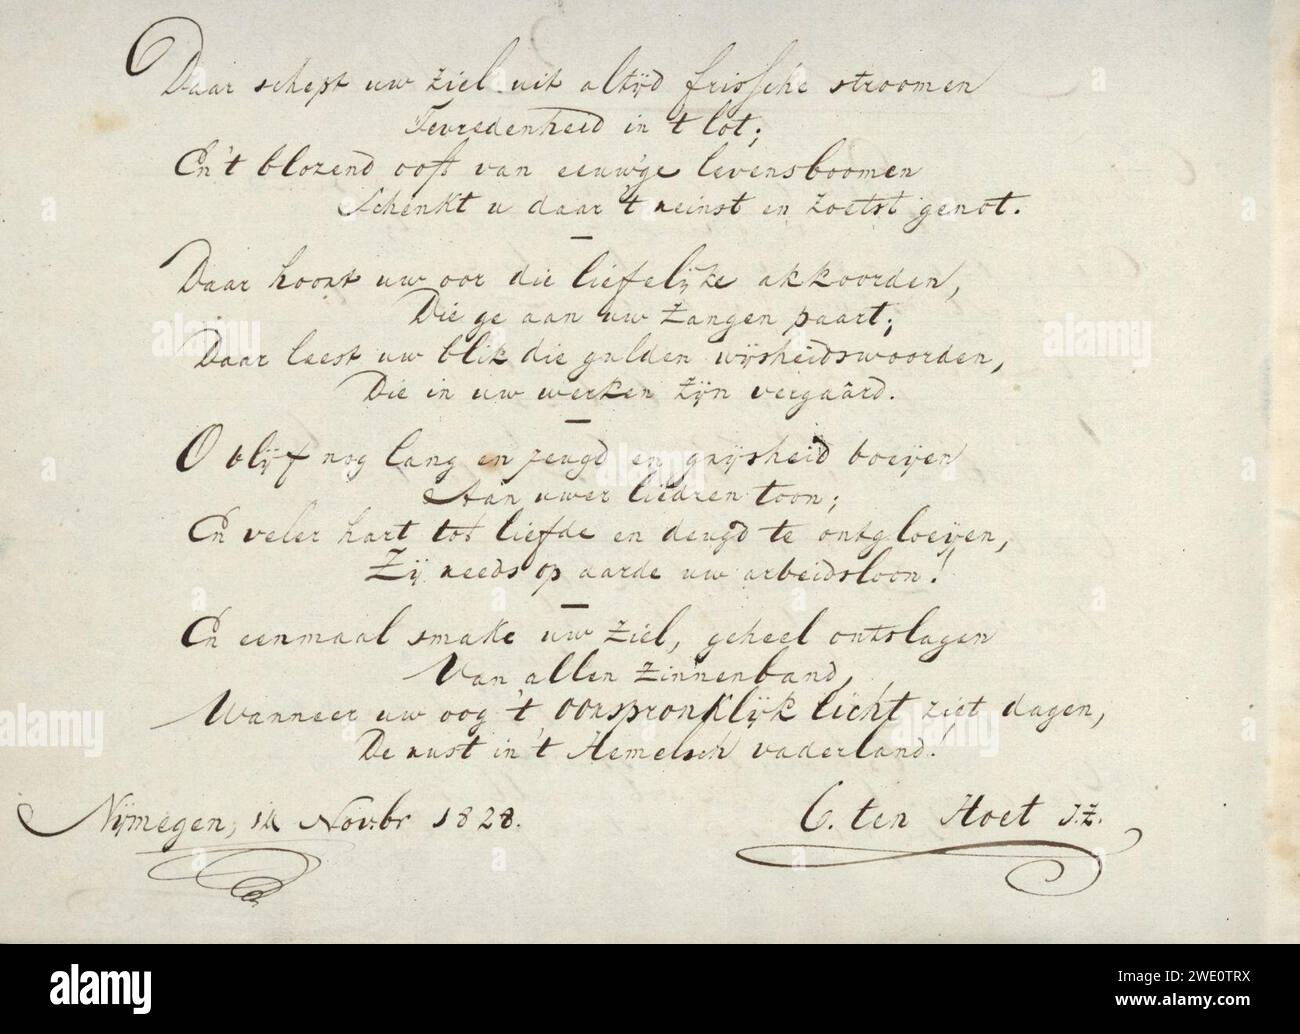 Daar schept uw ziel uit altijd frissche stroomen
Tevredenheid in 't lot;
En 't blozend ooft van eeuw'ge levensboomen
Schenkt u daar 't reinst en zoetst genot.
Daar hoort uw oor die liefelijke akkoorden,
Die ge aan uw zangen paart;
Daar leest uw blik die gulden wijsheidswoorden,
Die in uw werken zijn vergaârd.
O blijf nog lang en jeugd en grijsheid boeijen
Aan uwer liedren toon;
En veler hart tot liefde en deugd te ontgloeijen,
Zij reeds op aarde uw arbeidsloon!
En eenmaal smake uw ziel, geheel ontslagen
Van allen zinnenband,
Wanneer uw oog 't oorspronklijk licht ziet dagen,
De rust in 't Hemelsch vaderland!
Nijmegen, Novbr 1828.
C. ten Hoet J.Z.
alamy
2WE0TRX
www.alamy.com